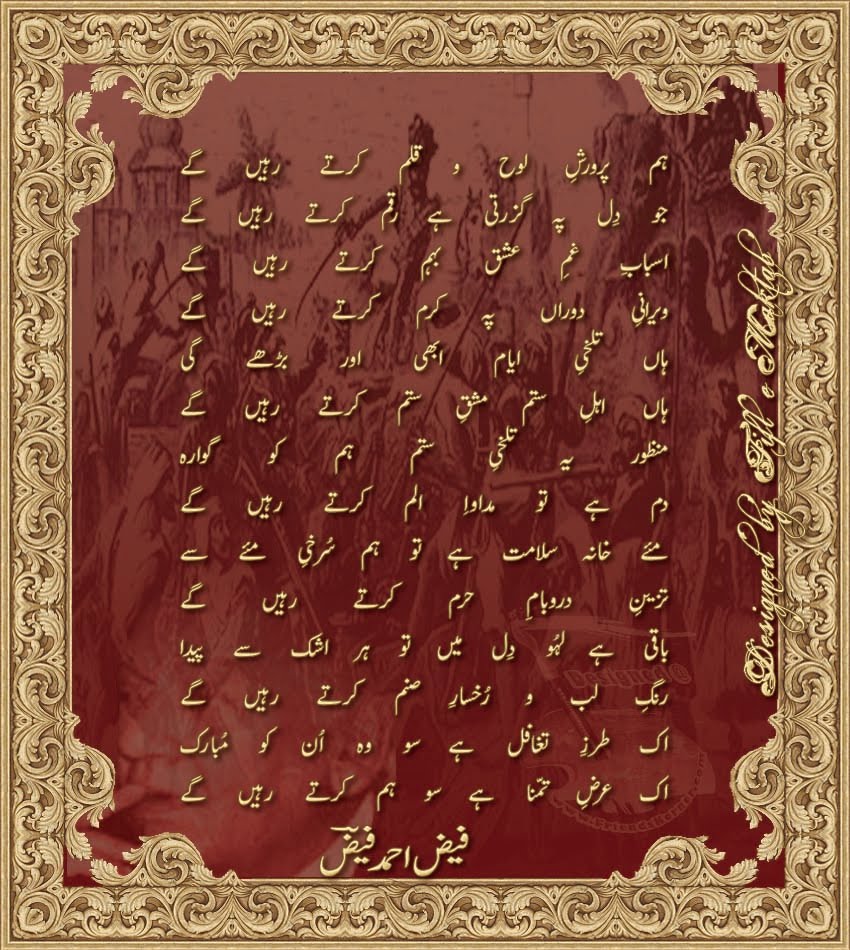 ہم پرورشِ لوح و قلم کرتے رہیں گے
جو دِل پہ گزرتی ہے رقم کرتے رہیں گے
اسبابِ غمِ عشق بہم کرتے رہیں گے
ویرانیِ دوراں پہ کرم کرتے رہیں گے
ہاں تلخیِ ایام ابھی اور بڑھے گی
ہاں اہلِ ستم مشقِ ستم کرتے رہیں گے
منظور یہ تلخیِ ستم ہم کو گوارہ
دم ہے تو مداواِ الم کرتے رہیں گے
مئے خانہ سلامت ہے تو ہم سُرخیِ مئے سے
تزینِ دروبامِ حرم کرتے رہیں گے
باقی ہے لہُو دِل میں تو ہر اشک سے پیدا
رنگِ لب و رُخسارِ صنم کرتے رہیں گے
اک طرزِ تغافل ہے سو وہ اُن کو مُبارک
اک عرضِ تمّنا ہے سو ہم کرتے رہیں گے
فیض احمد فیضؔ
Designed by Tifl e Maktab
Designed @
www.FriendsKorner.com